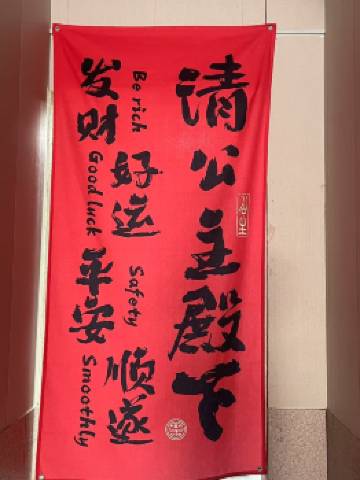 请公主殿下
发财
Be rich
好运
Good luck
平安
Safety
顺遂
Smoothly